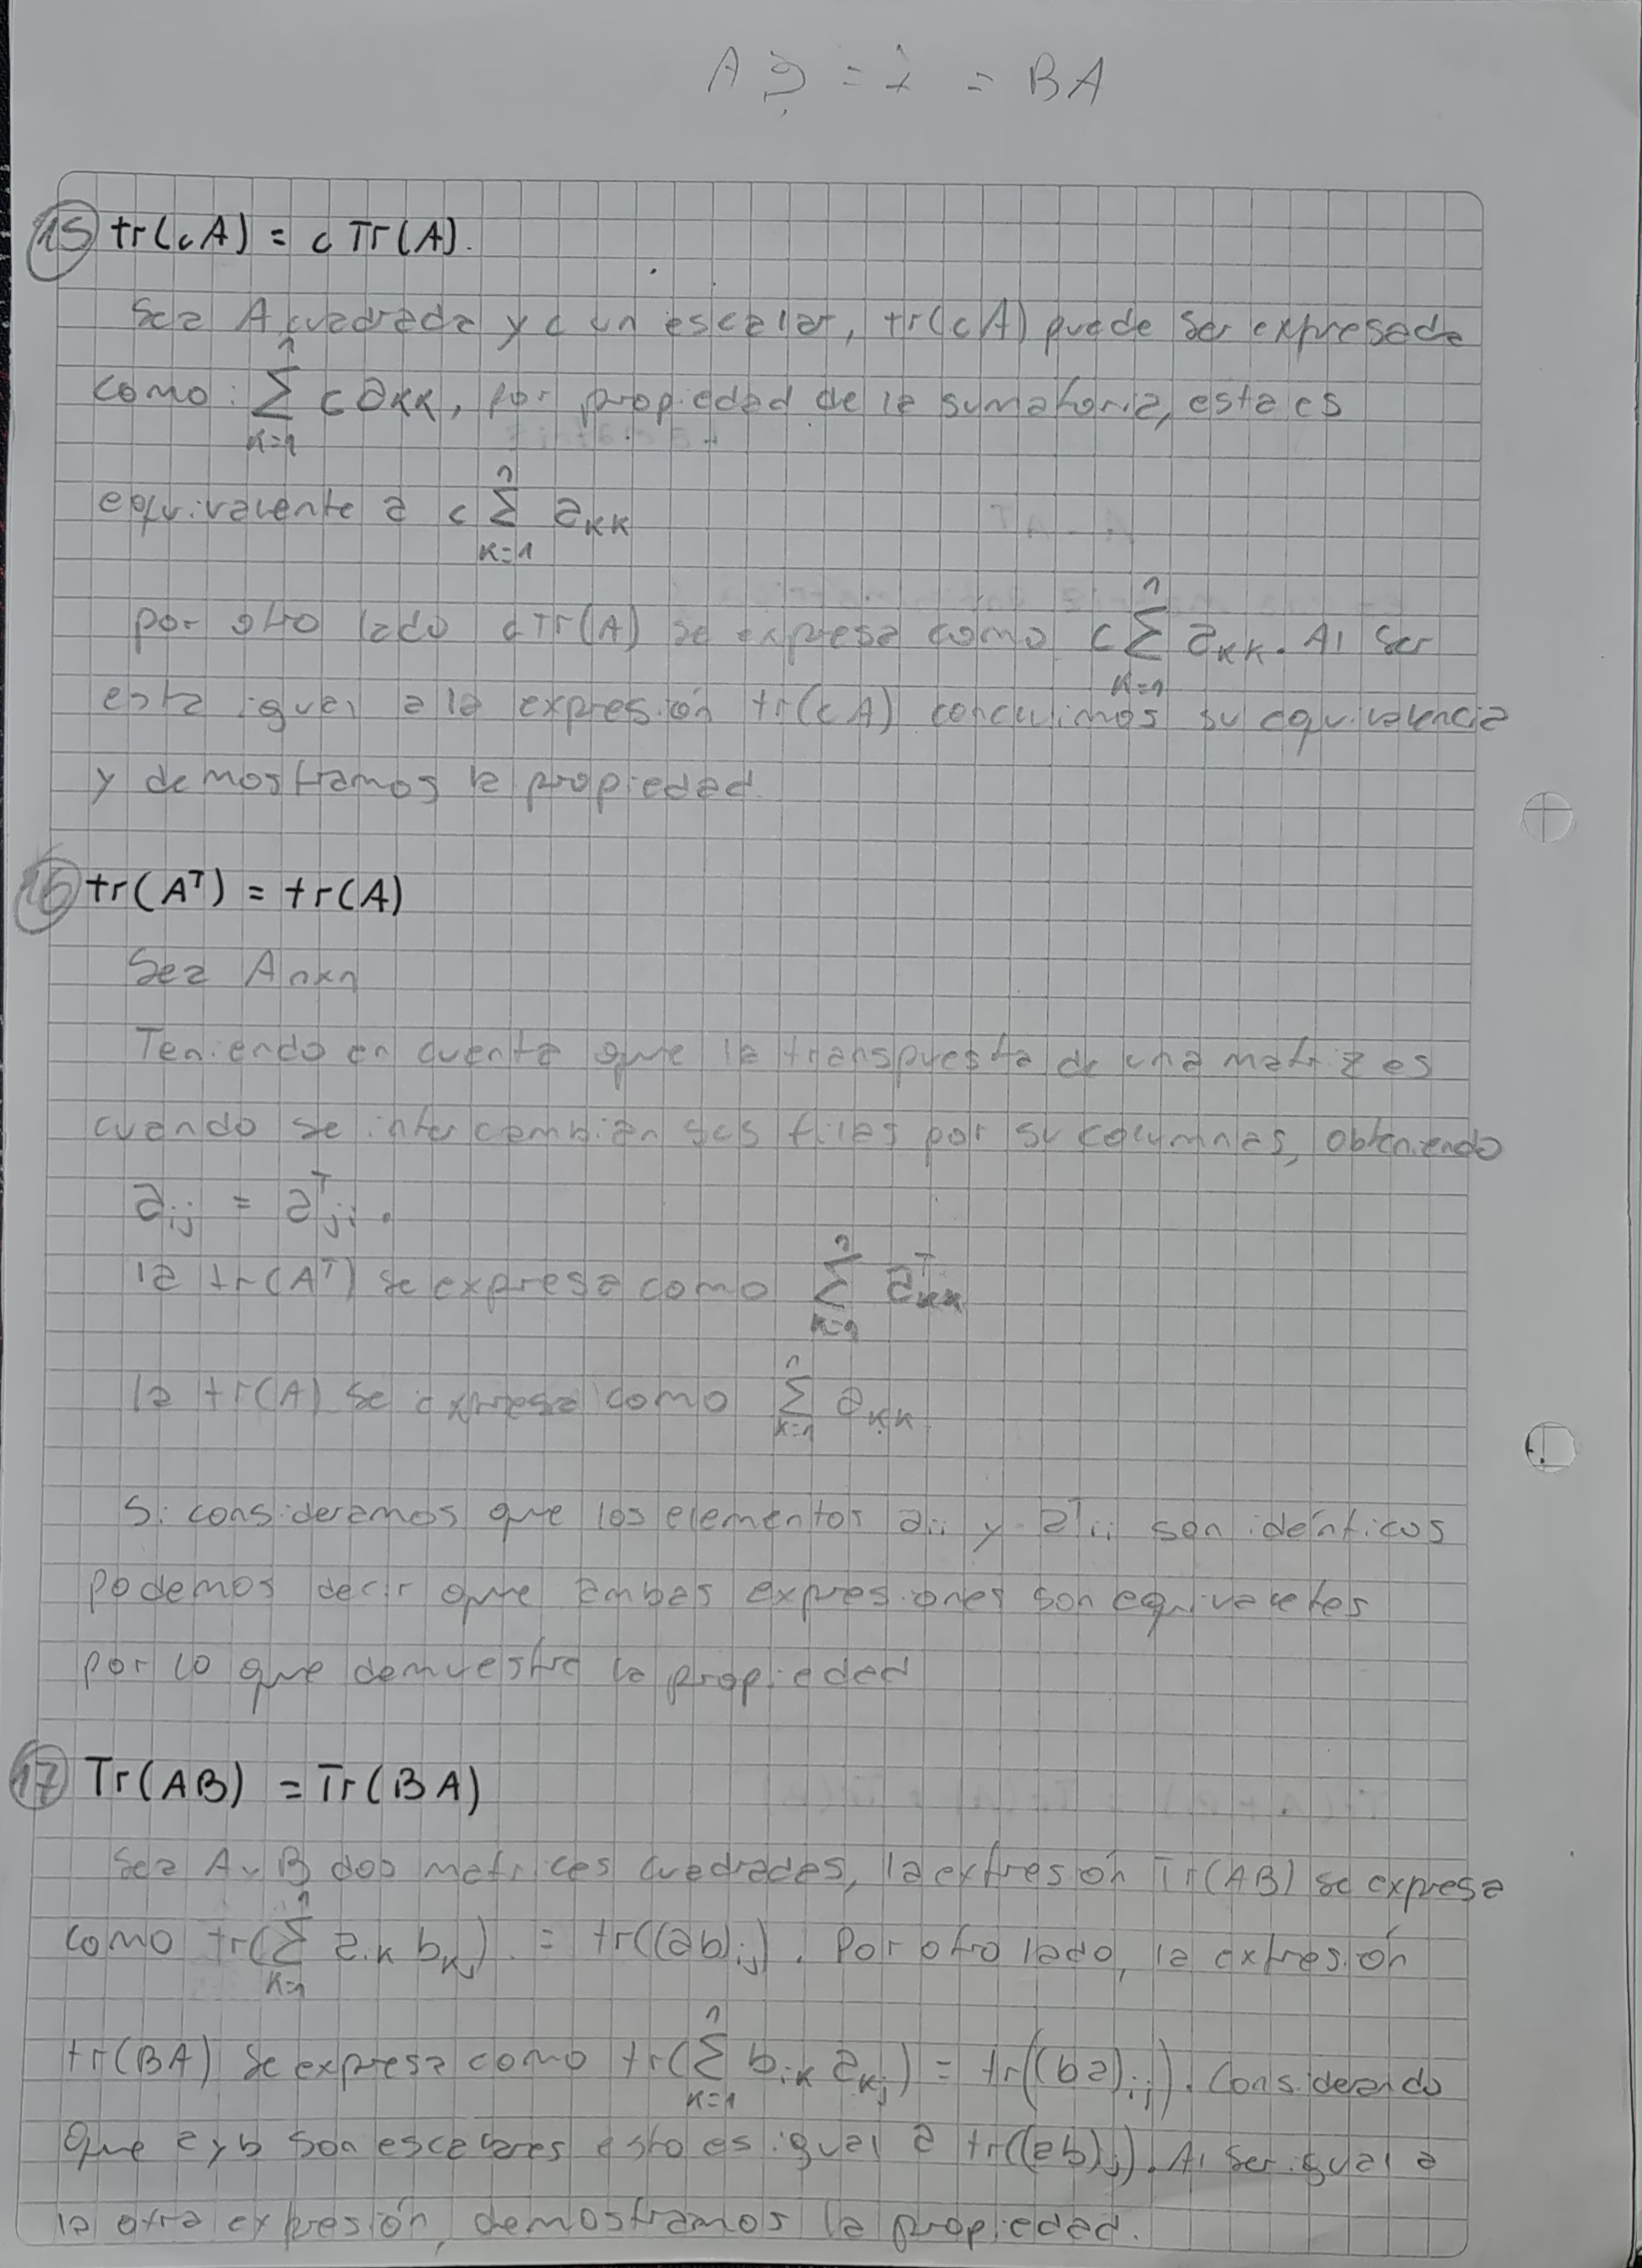 = BA
15 tr(cA) = c Tr(A).
Sea A cuadrada y c un escalar, tr(cA) puede ser expresada
como: n∑k=1 c akk, por propiedad de la sumatoria, esta es
equivalente a c n∑k=1 akk
por otro lado cTr(A) se expresa como c n∑k=1 akk. Al ser
esta igual a la expresión tr(cA) concluimos su equivalencia
y demostramos la propiedad.
16 tr(Aᵀ) = tr(A)
Sea Anxn
Teniendo en cuenta que la transpuesta de una matriz es
cuando se intercambian sus filas por su columnas, obteniendo
aij = aᵀji.
la tr(Aᵀ) se expresa como n∑k=1 aᵀkk
la tr(A) se expresa como n∑k=1 akk
Si consideramos que los elementos aii y aᵀii son idénticos
podemos decir que ambas expresiones son equivaletes
por lo que demuestra la propiedad
17 Tr(AB) = Tr(BA)
Sea A y B dos matrices cuadradas, la expresión Tr(AB) se expresa
como tr(n∑k=1 aik bkj) = tr((ab)ij). Por otro lado, la expresión
tr(BA) se expresa como tr(n∑k=1 bik akj) = tr((ba)ij). Considerando
que a y b son escalares esto es igual a tr((ab)ij). Al ser igual a
la otra expresión, demostramos la propiedad.